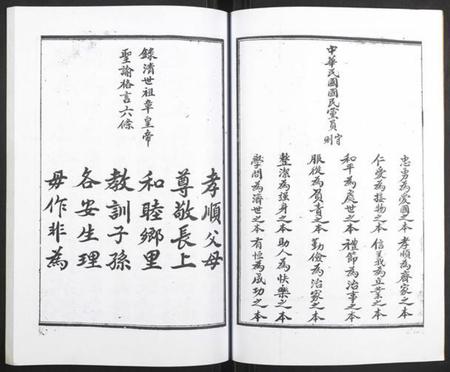 中華民國國民黨員守則
忠勇為愛國之本 孝順為齊家之本
仁愛為接物之本 信義為立業之本
和平為處世之本 禮節為治事之本
服從為負責之本 勤儉為治家之本
整潔為強身之本 助人為快樂之本
學問為濟世之本 有恆為成功之本
錄清世祖章皇帝
聖諭格言六條
孝順父母
尊敬長上
和睦鄉里
教訓子孫
各安生理
毋作非為